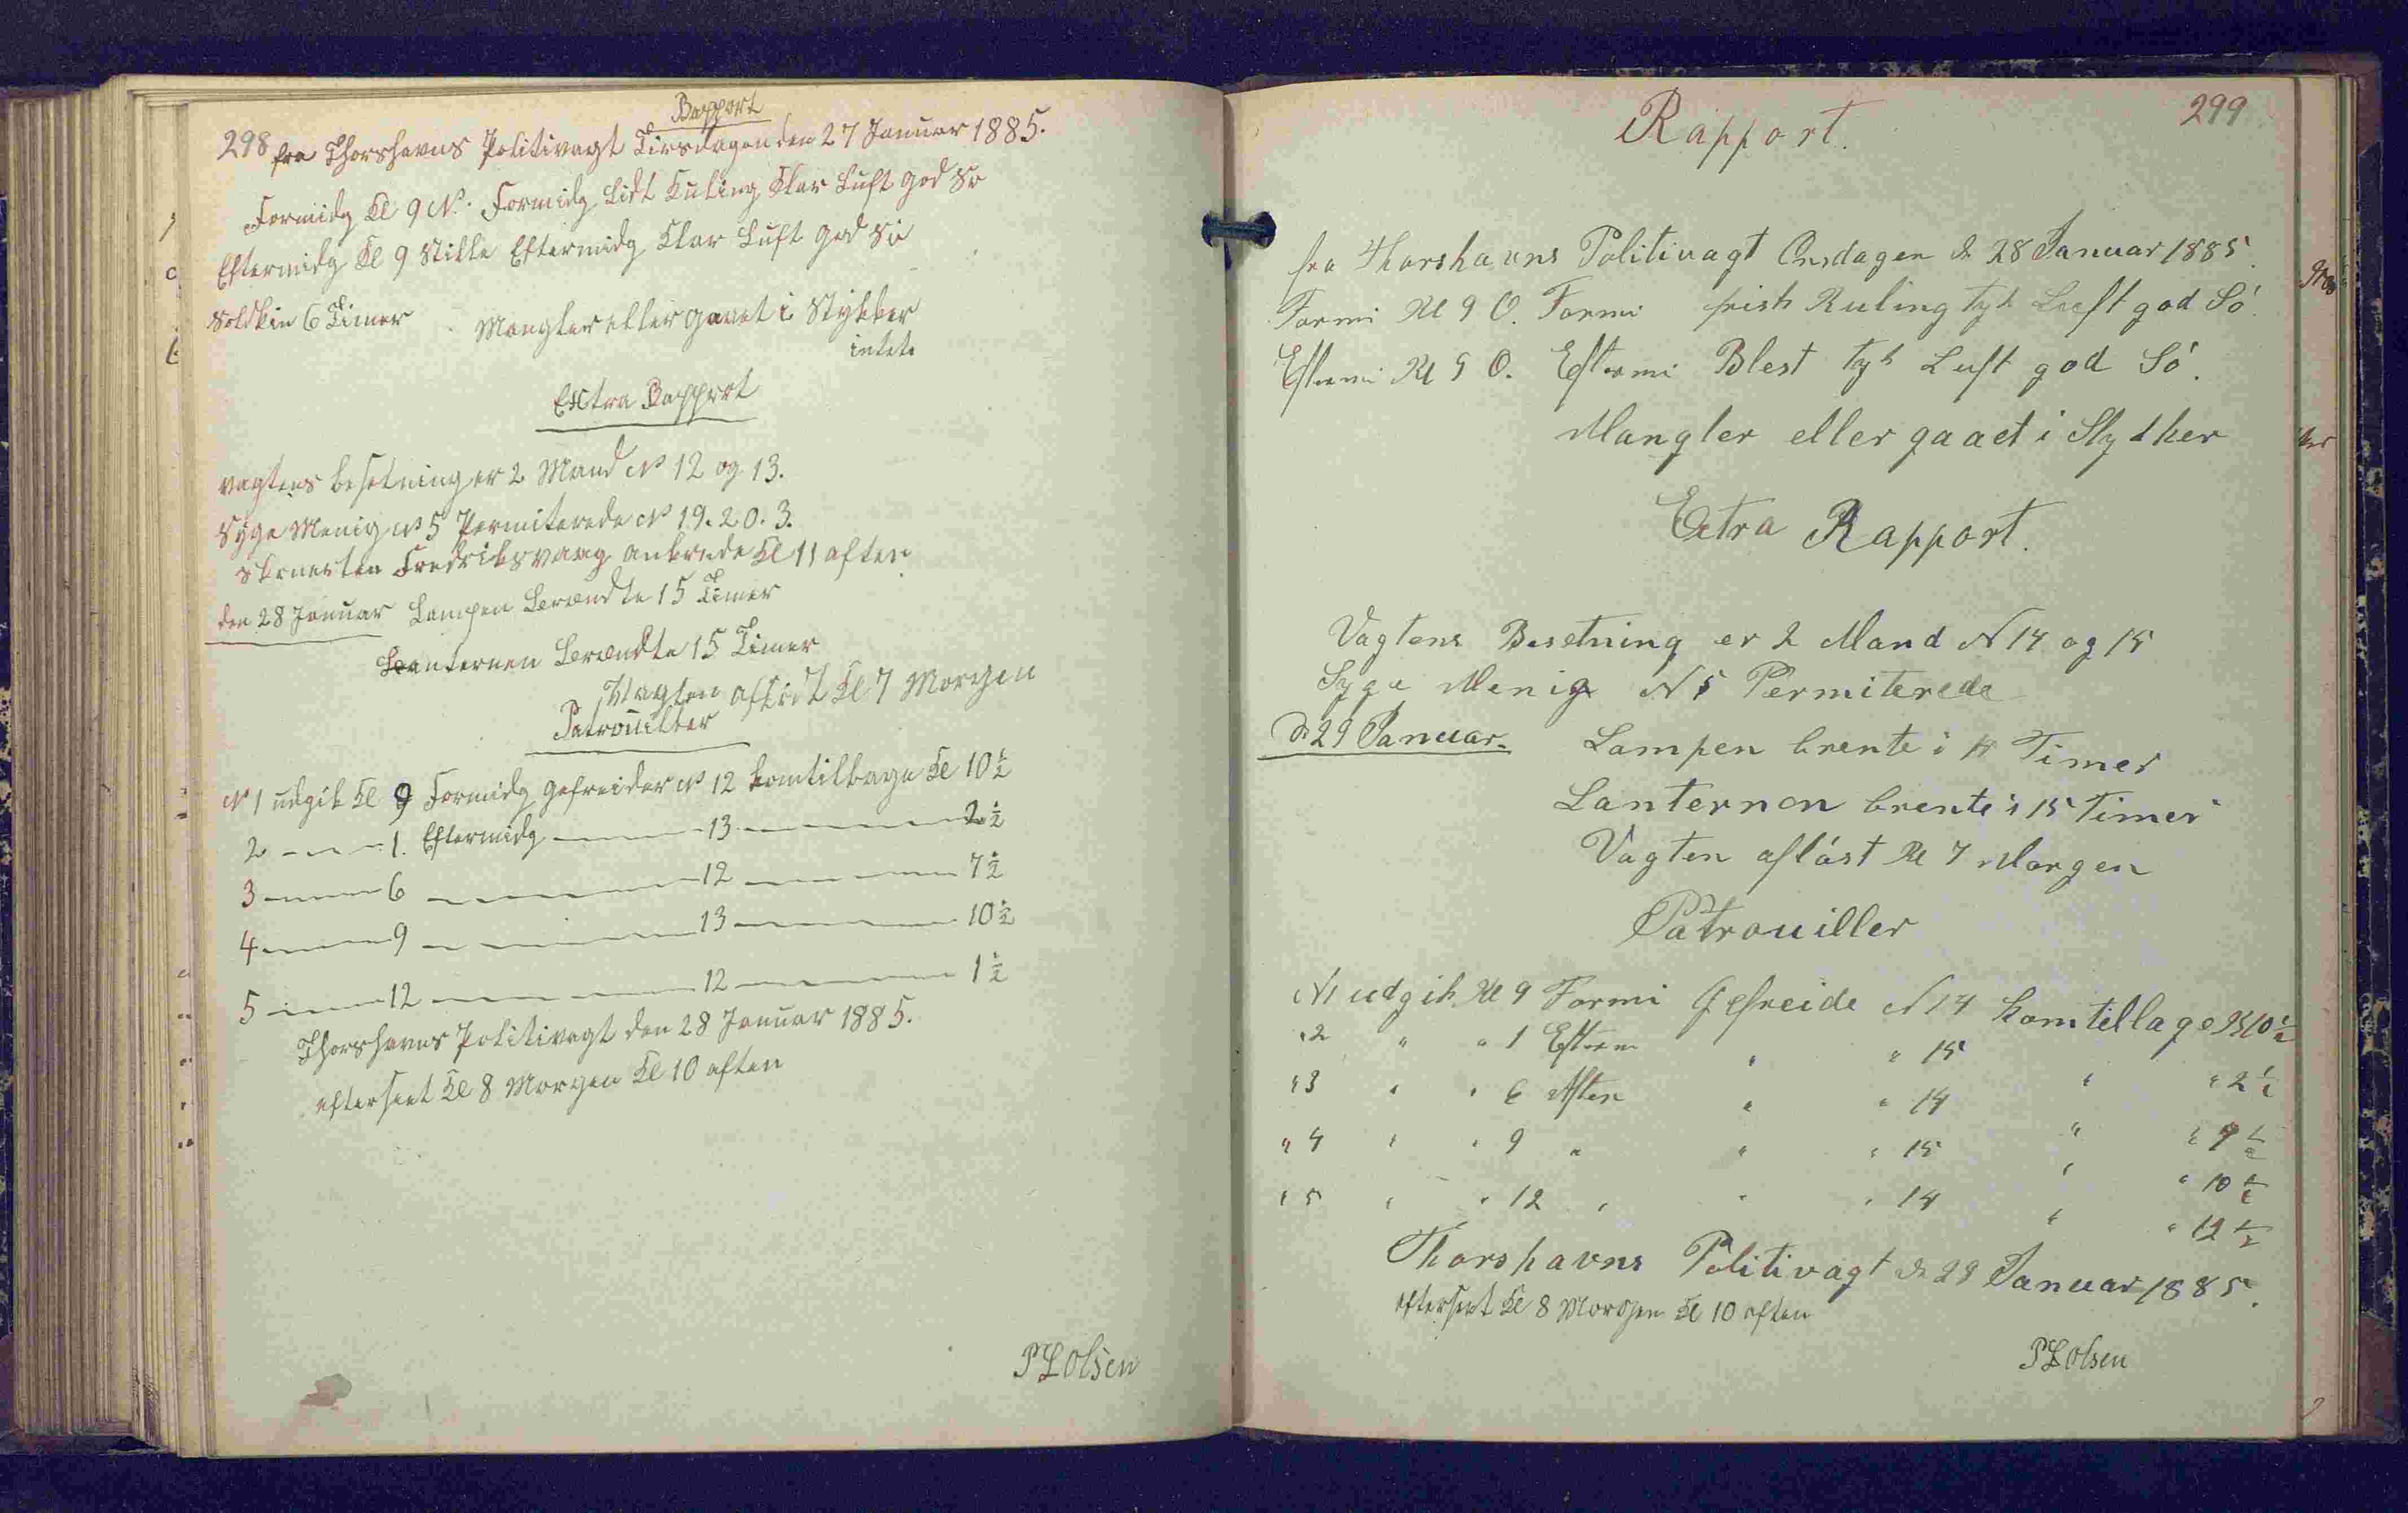 298
Rapport
fra Thorshavns Politivagt Tirsdagen den 27 Januar 1885.
Formidg Kl 9 N. Formidg Lidt Kuling Klar Luft god So
Eftermidg Kl 9 Stille Eftermidg Klar Luft god Sö
Solskin 6 Timer Mangler eller gaaet i Stykker
intet
Extra Rapport
vagtens besetning er 2 Mand No 12 og 13.
Syge Menig No 5 Permiterede No 19. 20. 3.
Skonerten Fredriksvaag ankrede Kl 11 aften
den 28 Januar Lampen Brændte 15 Timer
Lanternen Brændte 15 Timer
Vagten afløst Kl 7 Morgen
Patrouiller
No 1 udgik Kl 9 Formidg Gefreider No 12 komtilbage Kl 10 1/2
2 — 1. Eftermidg — 13 — 2 1/2
3 — 6 — 12 — 7 1/2
4 — 9 — 13 — 10 1/2
5 — 12 — 12 — 1 1/2
Thorshavns Politivagt den 28 Januar 1885.
efterseet Kl 8 Morgen Kl 10 aften
PLOlsen
299
Rapport.
fra Thorshavns Politivagt Onsdagen d. 28 Januar 1885.
Formi Kl 9 O. Formi frisk Kuling tyk Luft god Só.
Eftermi Kl 9 O. Eftermi Blest tyk Luft god Só.
Mangler eller gaaet i Stykker
Extra Rapport.
Vagtens Besetning er 2 Mand N 14 og 15
Syge Menig N 5 Permiterede
d. 29 Januar. Lampen brente i Timer
Lanternen brente i 15 Timer
Vagten aflóst Kl 7 Morgen
Patrouiller
N1 udgik Kl 9 Formi Gefreide N 14 Komtilbage Kl 10 1/2
" 2 " " 1 Efterm " " 15 " " 2 1/2
" 3 " " 6 Aften " " 14 " " 7 1/2
" 4 " " 9 " " " 15 " " 10 1/2
" 5 " " 12 " " " 14 " "
Thorshavns Politivagt d. 29 Januar 1885.
efterseet Kl 8 Morgen Kl 10 aften
PLOlsen